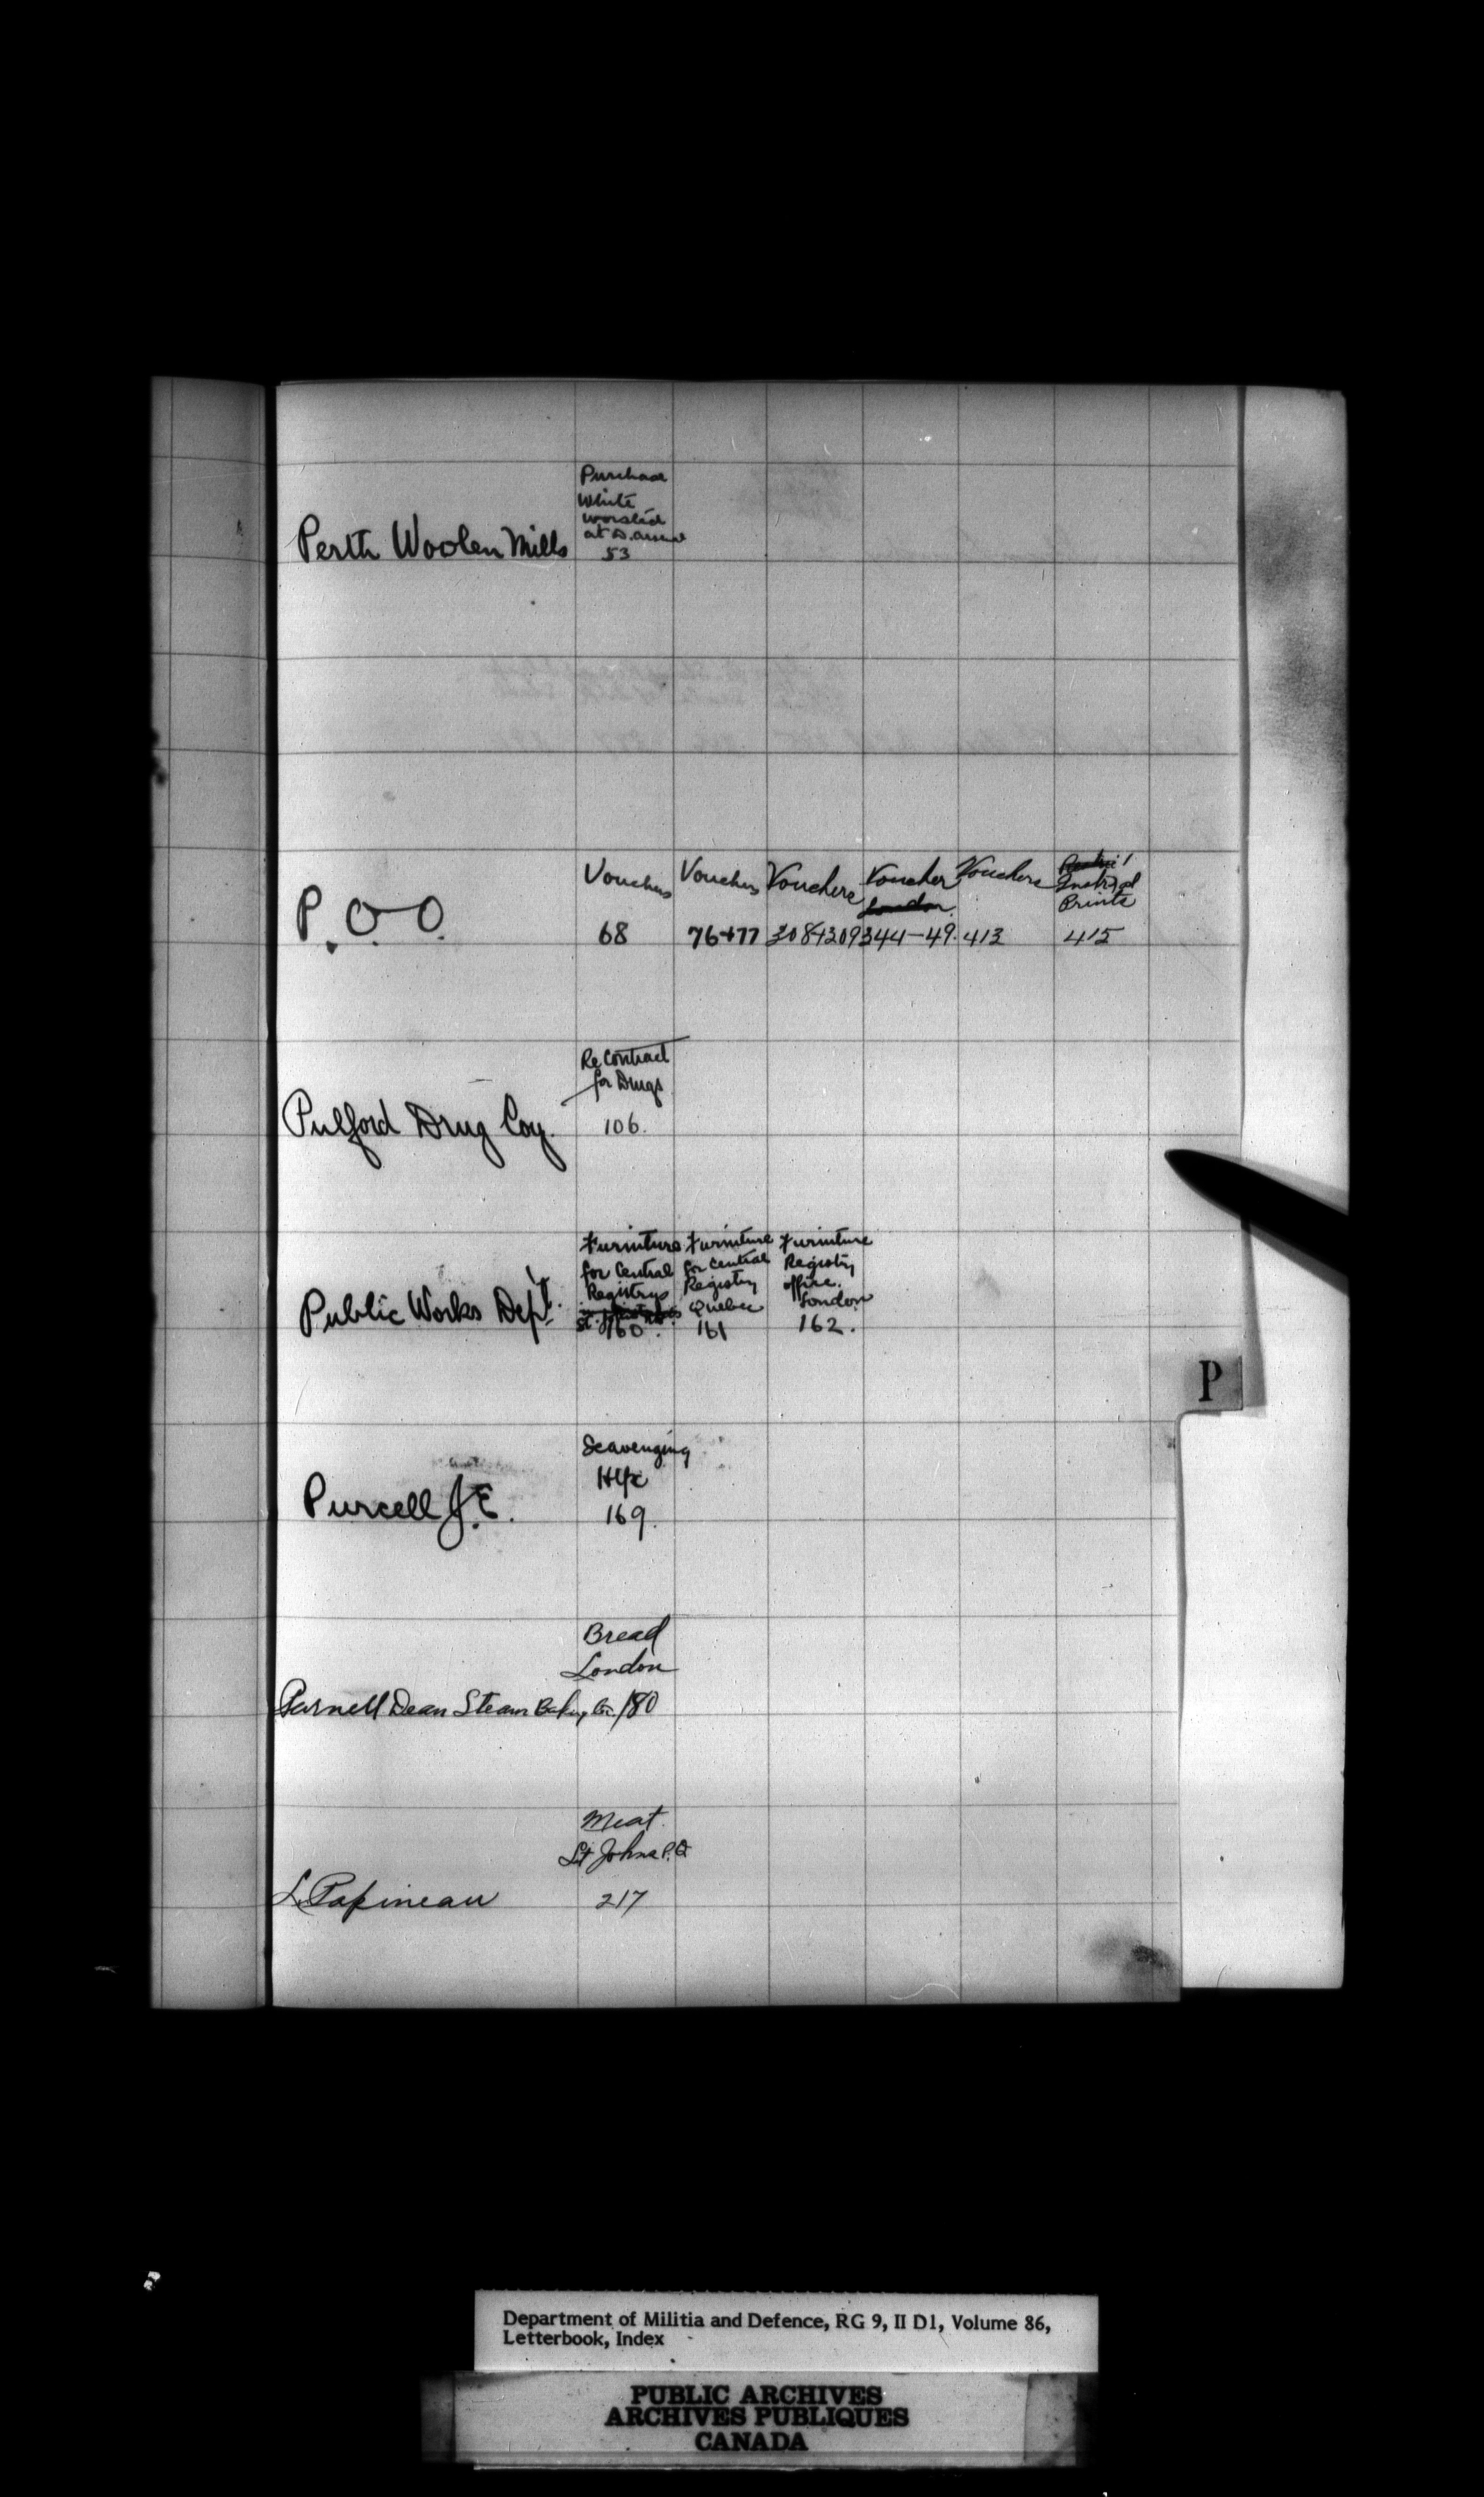 Purchase
White
Worsted
at D. arsenal
Perth Woolen Mills 53
Vouchers Vouchers Vouchers Voucher Vouchers
London Prints
P.O.O. 68 76+77 308+309 344-49. 413 415
Re Contract
for Drugs
Pulford Drug Coy. 106.
Furniture Furniture Furniture
for Central for Central Registry
Registrys Registry office.
St. Quebec London
Public Works Dept. 160. 161 162.
P
Scavenging
Hlfx
Purcell J.E. 169.
Bread
London
Parnell Dean Steam Baking Co. 180
Meat.
St Johns P.Q
L. Papineau 217
Department of Militia and Defence, RG 9, II D1, Volume 86,
Letterbook, Index
PUBLIC ARCHIVES
ARCHIVES PUBLIQUES
CANADA